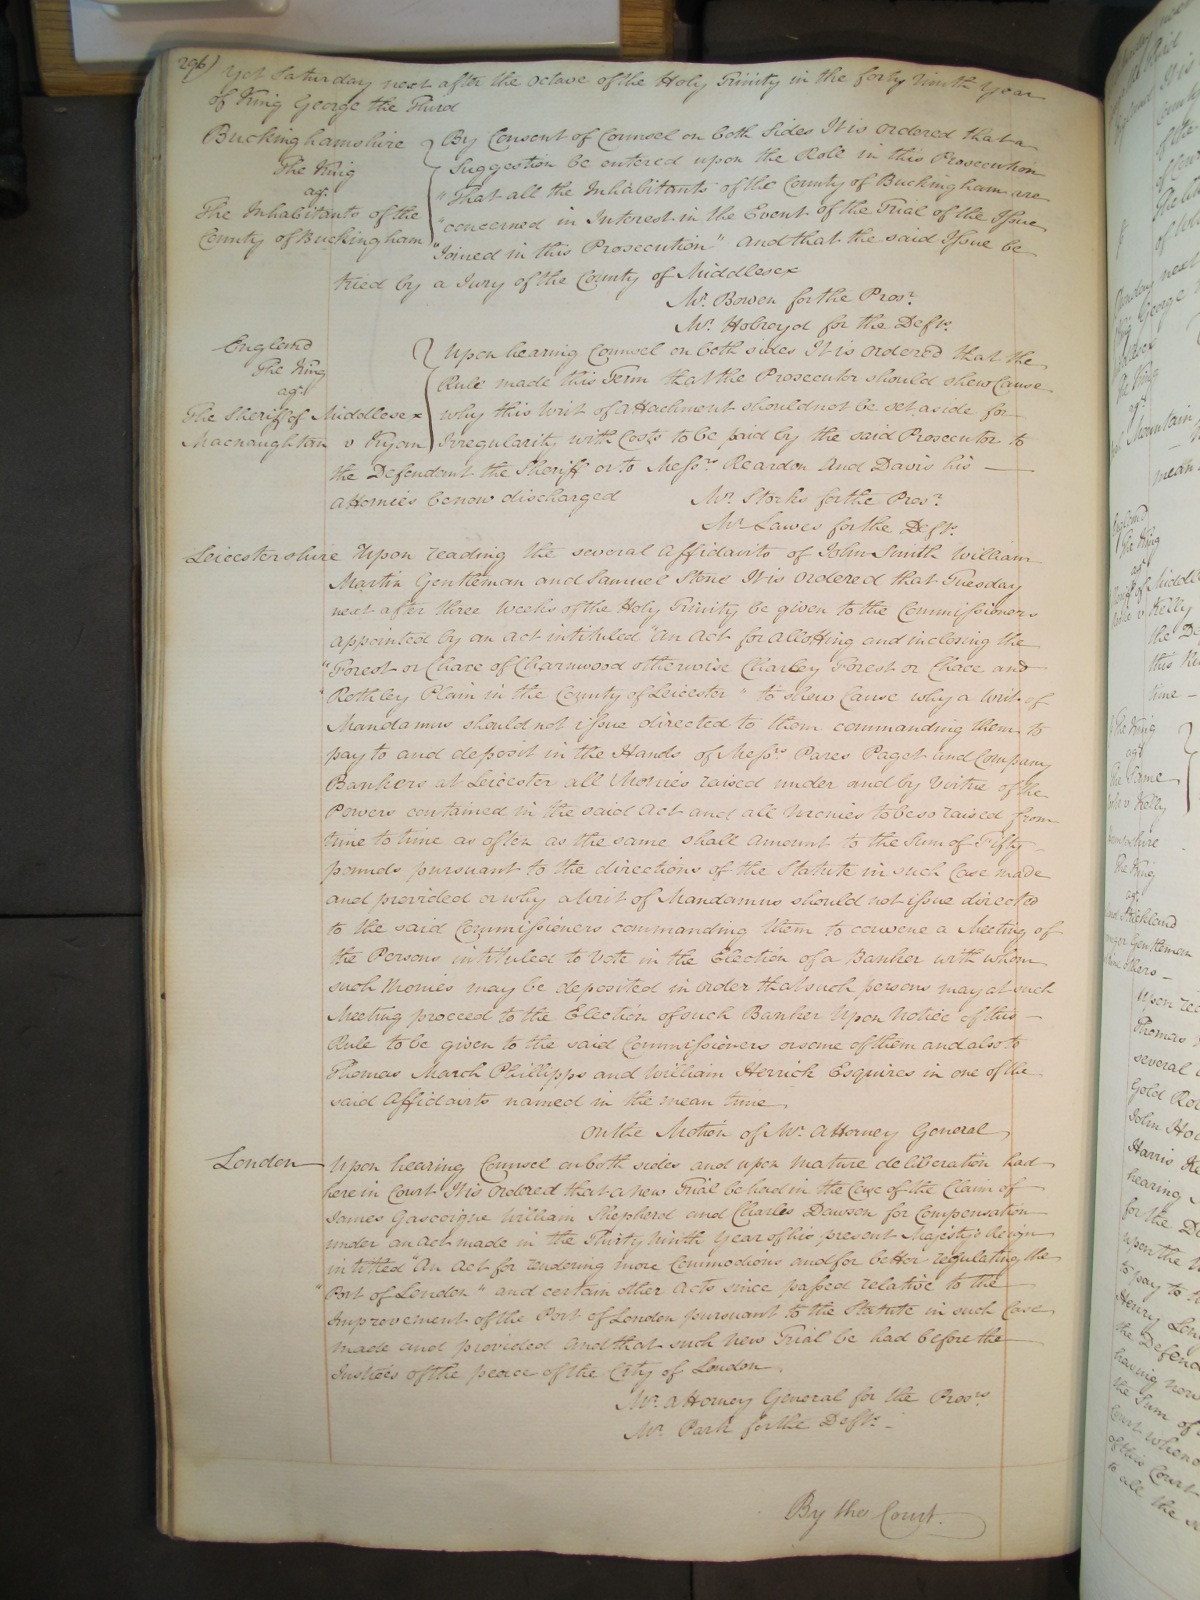 296)
Yet Saturday next after the Octave of the Holy Trinity in the forty Ninth Year
of King George the Third
Buckinghamshire
The King
agt.
The Inhabitants of the
County of Buckingham
By Consent of Counsel on both Sides It is ordered that a
Suggestion be entered upon the Role in this Prosecution
"That all the Inhabitants of the County of Buckingham are
"concerned in Interest in the Event of the Trial of the Issue
"Joined in this Prosecution" and that the said Issue be
tried by a Jury of the County of Middlesex
Mr. Bowen for the Prosr.
Mr. Holroyd for the Defts.
England
The King
agt.
The Sheriff of Middlesex
Macnaughtan v Tryan
Upon hearing Counsel on both sides It is Ordered that the
Rule made this Term that the Prosecutor should shew Cause
why this Writ of attachment should not be set aside for
Irregularity with Costs to be paid by the said Prosecutor to
the Defendant the Sheriff or to Messrs. Reardon and Davis his
attornies be now discharged
Mr. Storks for the Prosr.
Mr. Lawes for the Deft.
Leicestershire Upon reading the several affidavits of John Smith William
Martin Gentleman and Samuel Stone It is Ordered that Tuesday
next after three Weeks of the Holy Trinity be given to the Commissioners
appointed by an act intituled "an Act for allotting and inclosing the
"Forest or Chace of Charnwood otherwise Charley Forest or Chace and
"Rothley Plain in the County of Leicester" to shew Cause why a Writ of
Mandamus should not issue directed to them commanding them to
pay to and deposit in the Hands of Messrs. Pares Paget and Company
Bankers at Leicester all Monies raised under and by Virtue of the
Powers contained in the said Act and all Monies to be so raised from
time to time as often as the same shall amount to the Sum of Fifty
pounds pursuant to the directions of the Statute in such Case made
and provided or why a Writ of Mandamus should not issue directed
to the said Commissioners commanding them to convene a Meeting of
the Persons intituled to Vote in the Election of a Banker with whom
such Monies may be deposited in order that such persons may at such
Meeting proceed to the Election of such Banker Upon Notice of this
Rule to be given to the said Commissioners or some of them and also to
Thomas March Phillipps and William Herrick Esquires in one of the
said Affidavits named in the mean time
On the Motion of Mr. Attorney General
London Upon hearing Counsel on both sides and upon Mature deliberation had
here in Court It is Ordered that a new Trial be had in the Case of the Claim of
James Gascoigne William Shepherd and Charles Dawson for Compensation
under an Act made in the Thirty Ninth Year of his present Majesty's Reign
intitled "An Act for rendering more Commodious and for better regulating the
"Port of London" and certain other Acts since passed relative to the
Improvement of the Port of London pursuant to the Statute in such Case
made and provided And that such new Trial be had before the
Justices of the peace of the City of London
Mr. Attorney General for the Prosrs
Mr. Park for the Defts.
By the Court.
England
The King
agt.
v Kelly
The King
agt.
v Kelly
The King
agt.
Gentleman
others
Upon rea
Thomas
several
John
Harris
hearing
for the De
upon the
to pay to
Henry
the Defend
having now
the Sum of
Court
of this Court
to all the